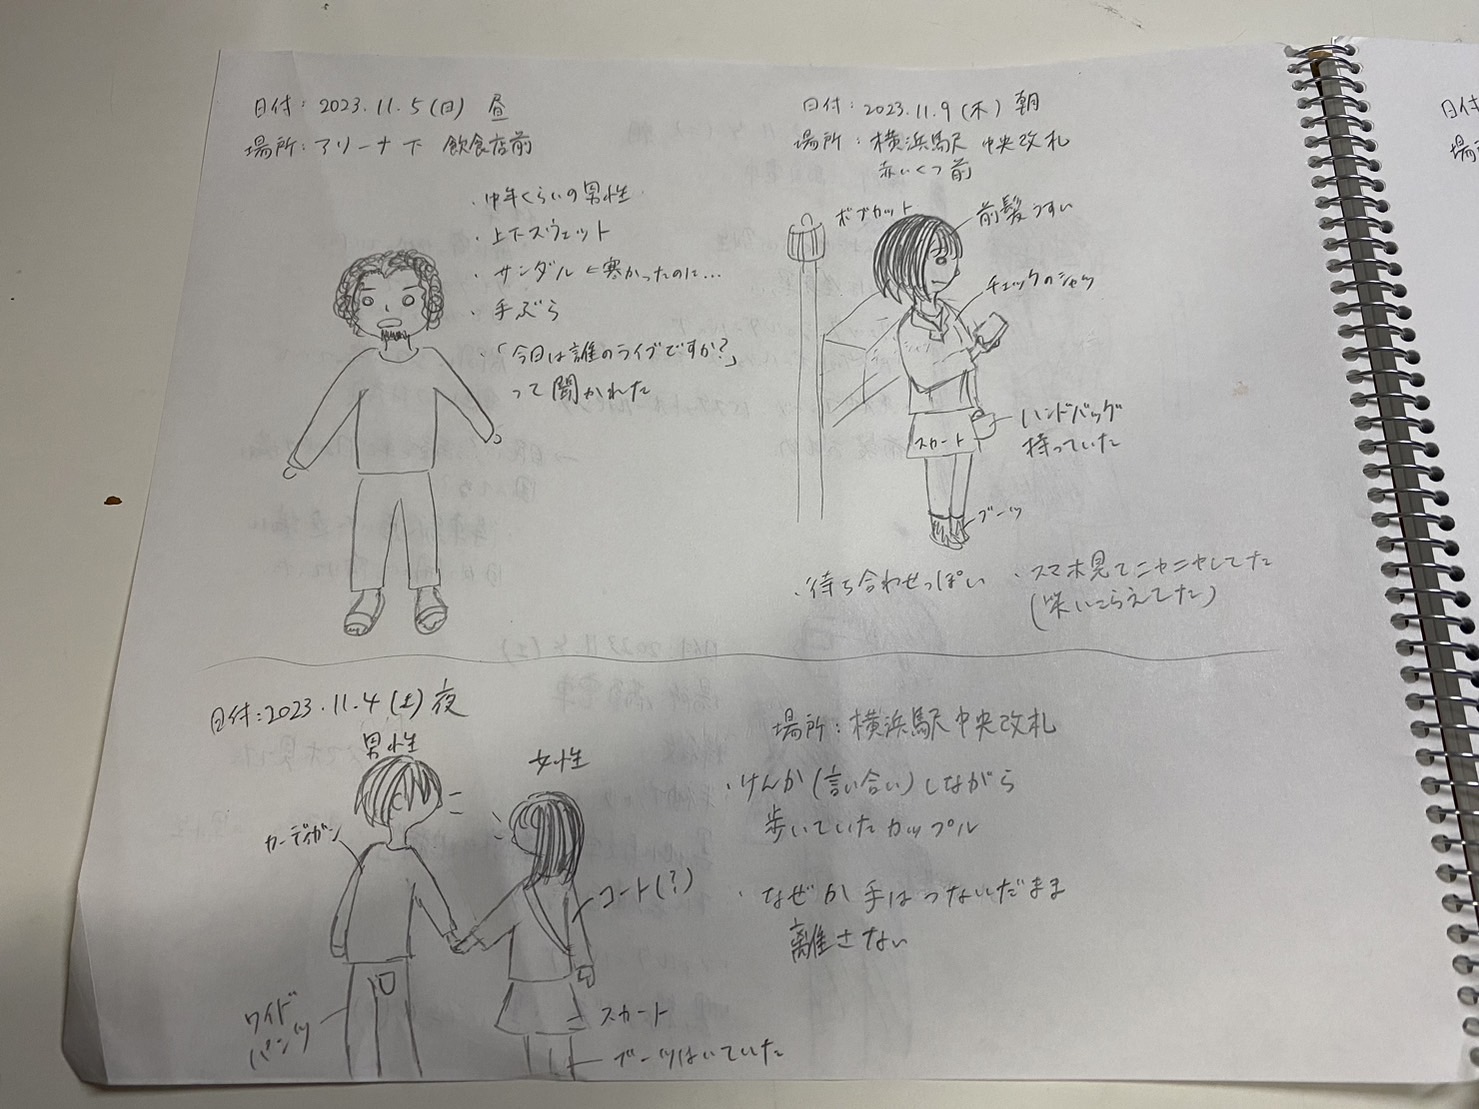 日付: 2023.11.5(日) 昼
場所:アリーナ下 飲食店前
・中年くらいの男性
・上下スウェット
・サンダル ←寒かったのに…
・手ぶら
・「今日は誰のライブですか?」
って聞かれた
日付:2023.11.9(木) 朝
場所:横浜駅 中央改札
赤いくつ前
ボブカット
前髪うすい
チェックのシャツ
ハンドバッグ
持っていた
スカート
ブーツ
・待ち合わせっぽい
・スマホ見てニヤニヤしてた
(笑いこらえてた)
日付:2023.11.4(土)夜
場所:横浜駅中央改札
男性
女性
カーディガン
コート(?)
ワイド
パンツ
スカート
ブーツはいていた
・けんか(言い合い)しながら
歩いていたカップル
・なぜか手はつないだまま
離さない
日付
場所